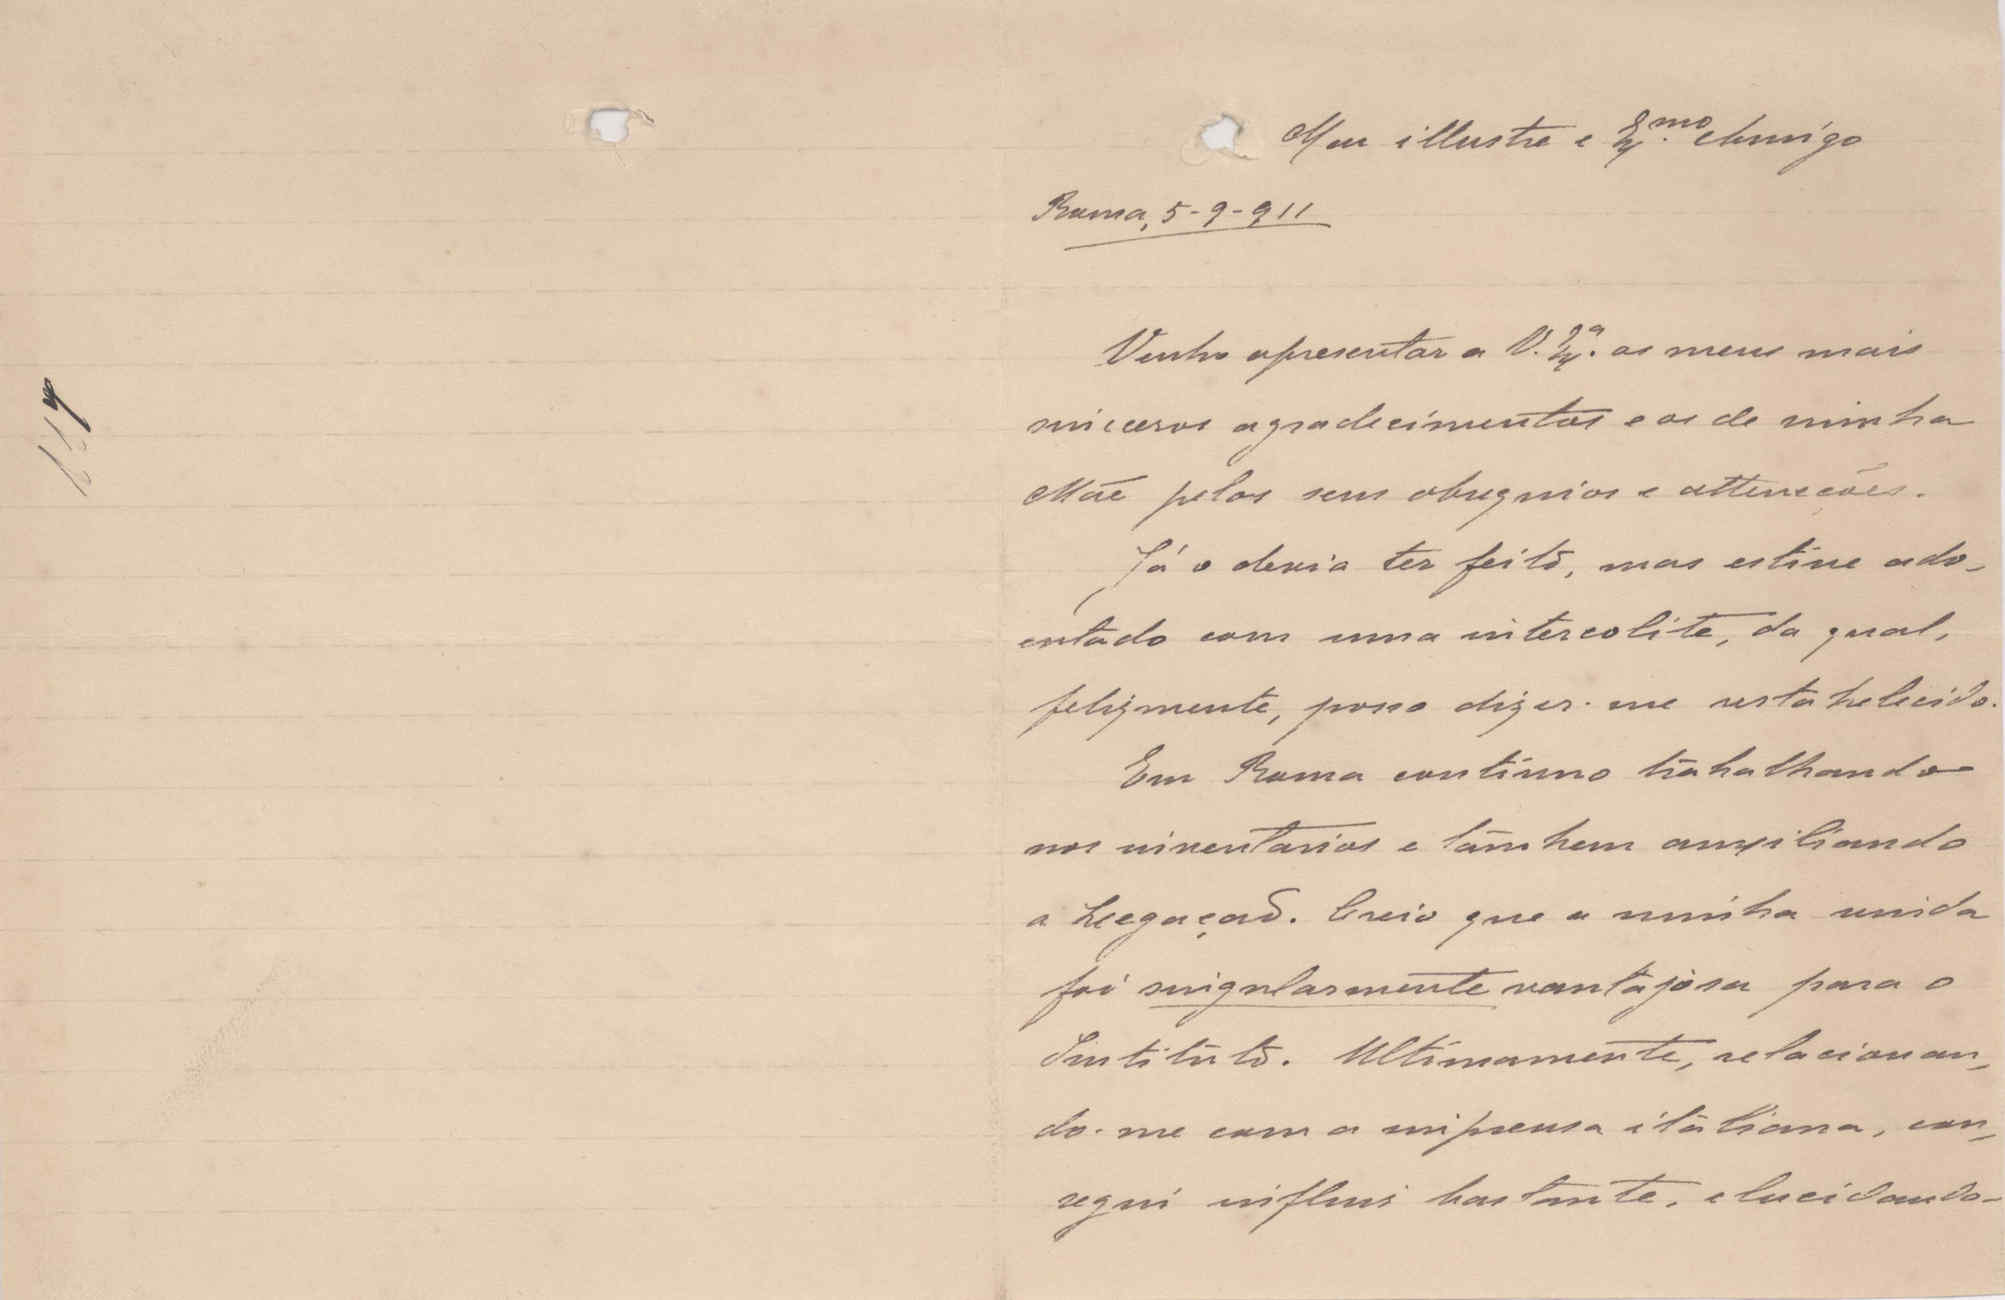 Meu illustre e Ex.mo Amigo
Roma, 5-9-911
Venho apresentar a V. Ex.a os meus mais
sinceros agradecimentos e os de minha
Mãe pelos seus obsequios e attenções.
Já o devia ter feito, mas estive ado-
entado com uma intercolite, da qual,
felizmente, posso dizer-me restabelecido.
Em Roma continuo trabalhando
nos inventarios e tambem auxiliando
a Legação. Creio que a minha vinda
foi singularmente vantajosa para o
Instituto. Ultimamente, relacionan-
do-me com a imprensa italiana, con-
segui influir bastante, elucidando-